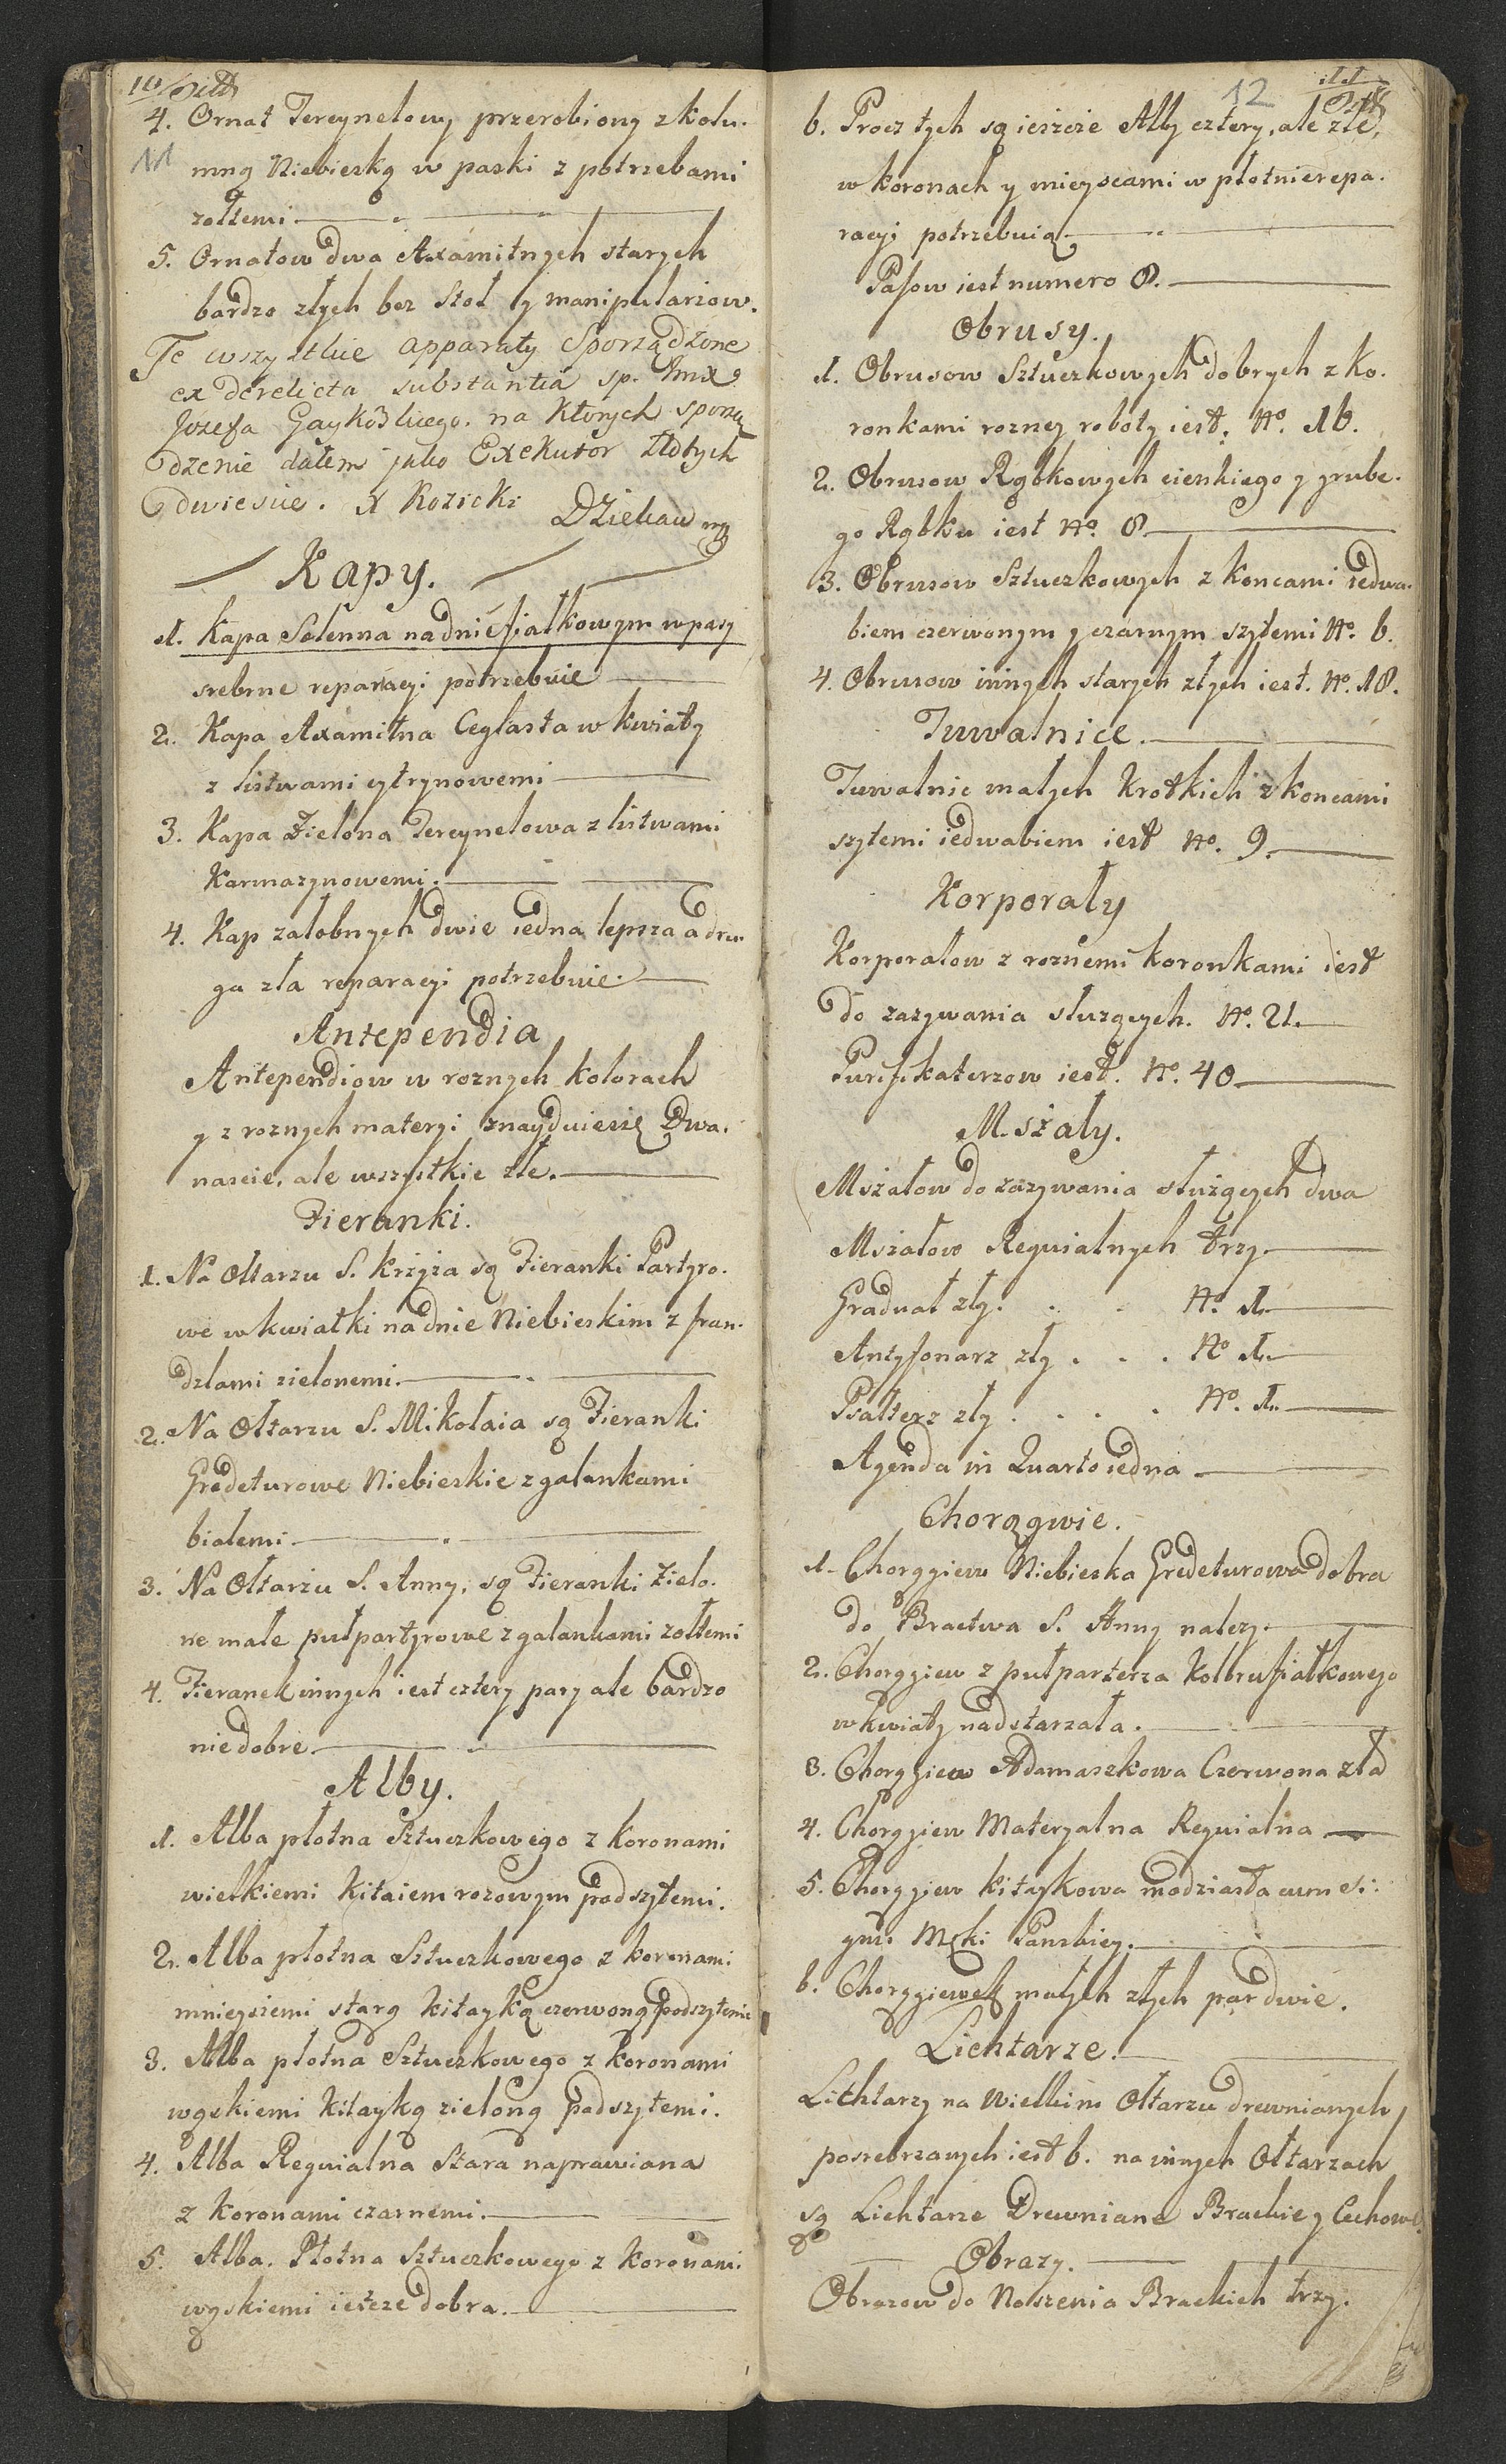 10
4. Ornat Tercynelowy przerobiony z kolu-
11
mną Niebieską w paski z potrzebami
żołtemi.
5. Ornatow dwa Axamitnych starych
bardzo złych bez Stoł y manipularzow.
Te wszystkie apparaty Sporządzone
ex derelicta substantia sp.
Jozefa na ktorych sporzą
dzenie dałem jako Exekutor Złłotych
dwiescie. X Kozicki Dziekan
Kapy.
1. Kapa Solenna na dnie fiałkowym w pasy
srebrne reparacyi potrzebuie
2. Kapa Axamitna Ceglasta w kwiaty
z listwami cytrynowemi
3. Kapa Zielona Tercynelowa z listwami
Karmazynowemi.
4. Kap załobnych dwie iedna lepsza a dru-
ga zła reparacyi potrzebuie.
Antependia
Antependiow w roznych kolorach
y z roznych materyi znayduie się Dwa-
nascie, ale wszystkie złe.
Fieranki.
1. Na Ołtarzu S. Krzyża są Fieranki Partyro-
we w kwiatki na dnie Niebieskim z fran-
dzlami zielonemi.
2. Na Ołtarzu S. Mikołaia są Fieranki
Gredeturowe Niebieskie z galankami
białemi
3. Na Ołtarzu S. Anny, są Fieranki Zielo-
ne małe pułpartyrowe z galankami żołtemi
4. Fieranek innych iest cztery pary ale bardzo
nie dobre.
Alby.
1. Alba płotna Sztuczkowego z koronami
wielkiemi kitaiem rozowym podszytemi.
2. Alba płotna Sztuczkowego z koronami
mnieyszemi starą kitayką czerwoną podszytemi
3. Alba płotna Sztuczkowego z koronami
wąskiemi kitayką zieloną podszytemi.
4. Alba Requialna Stara naprawiana
z koronami czarnemi.
5. Alba. Płotna Sztuczkowego z koronami
wąskiemi iescze dobra.
12
11
6. Procz tych są ieszcze Alby cztery, ale złe,
w koronach y mieyscami w płotnie repa-
racyi potrzebuią.
Pasow iest numero 8.
Obrusy.
1. Obrusow Sztuczkowych dobrych z ko-
ronkami rozney roboty iest. No. 16.
2. Obrusow Rąbkowych cienkiego y grube-
go Rąbku iest No. 8
3. Obrusow Sztuczkowych z koncami iedwa-
biem czerwonym y czarnym szytemi No. 6.
4. Obrusow innych starych złych iest. No. 18.
Tuwalnice.
Tuwalnic małych Krotkich z koncami
szytemi iedwabiem iest No. 9.
Korporały
Korporałow z roznemi koronkami iest
do zazywania służących. No. 21.
Puryfikaterzow iest. No. 40
Mszały.
Mszałow do zazywania służących dwa
Mszałow Requialnych trzy.
Graduał zły. . . No. 1.
Antyfonarz zły . . . No 1.
Psałterz zły . . . . No. 1.
Agenda in Quarto iedna
Chorągwie.
1. Chorągiew Niebieska Gredeturowa dobra
do Bractwa S. Anny należy.
2. Chorągiew z pułparterza Kolbru fiałkowego
w kwiaty nadstarzała.
3. Chorągiew Adamaszkowa Czerwona zła
4. Chorągiew Materyalna Requialna
5. Chorągiew kitaykowa modziasta cum si-
gno Męki Panskiey.
6. Chorągiewek małych złych par dwie.
Lichtarze.
Lichtarzy na Wielkim Ołtarzu drewnianych
posrebrzanych iest 6. na innych Ołtarzach
są Lichtarze Drewniane Brackie y Cechowe.
Obrazy.
Obrazow do Noszenia Brackich trzy.